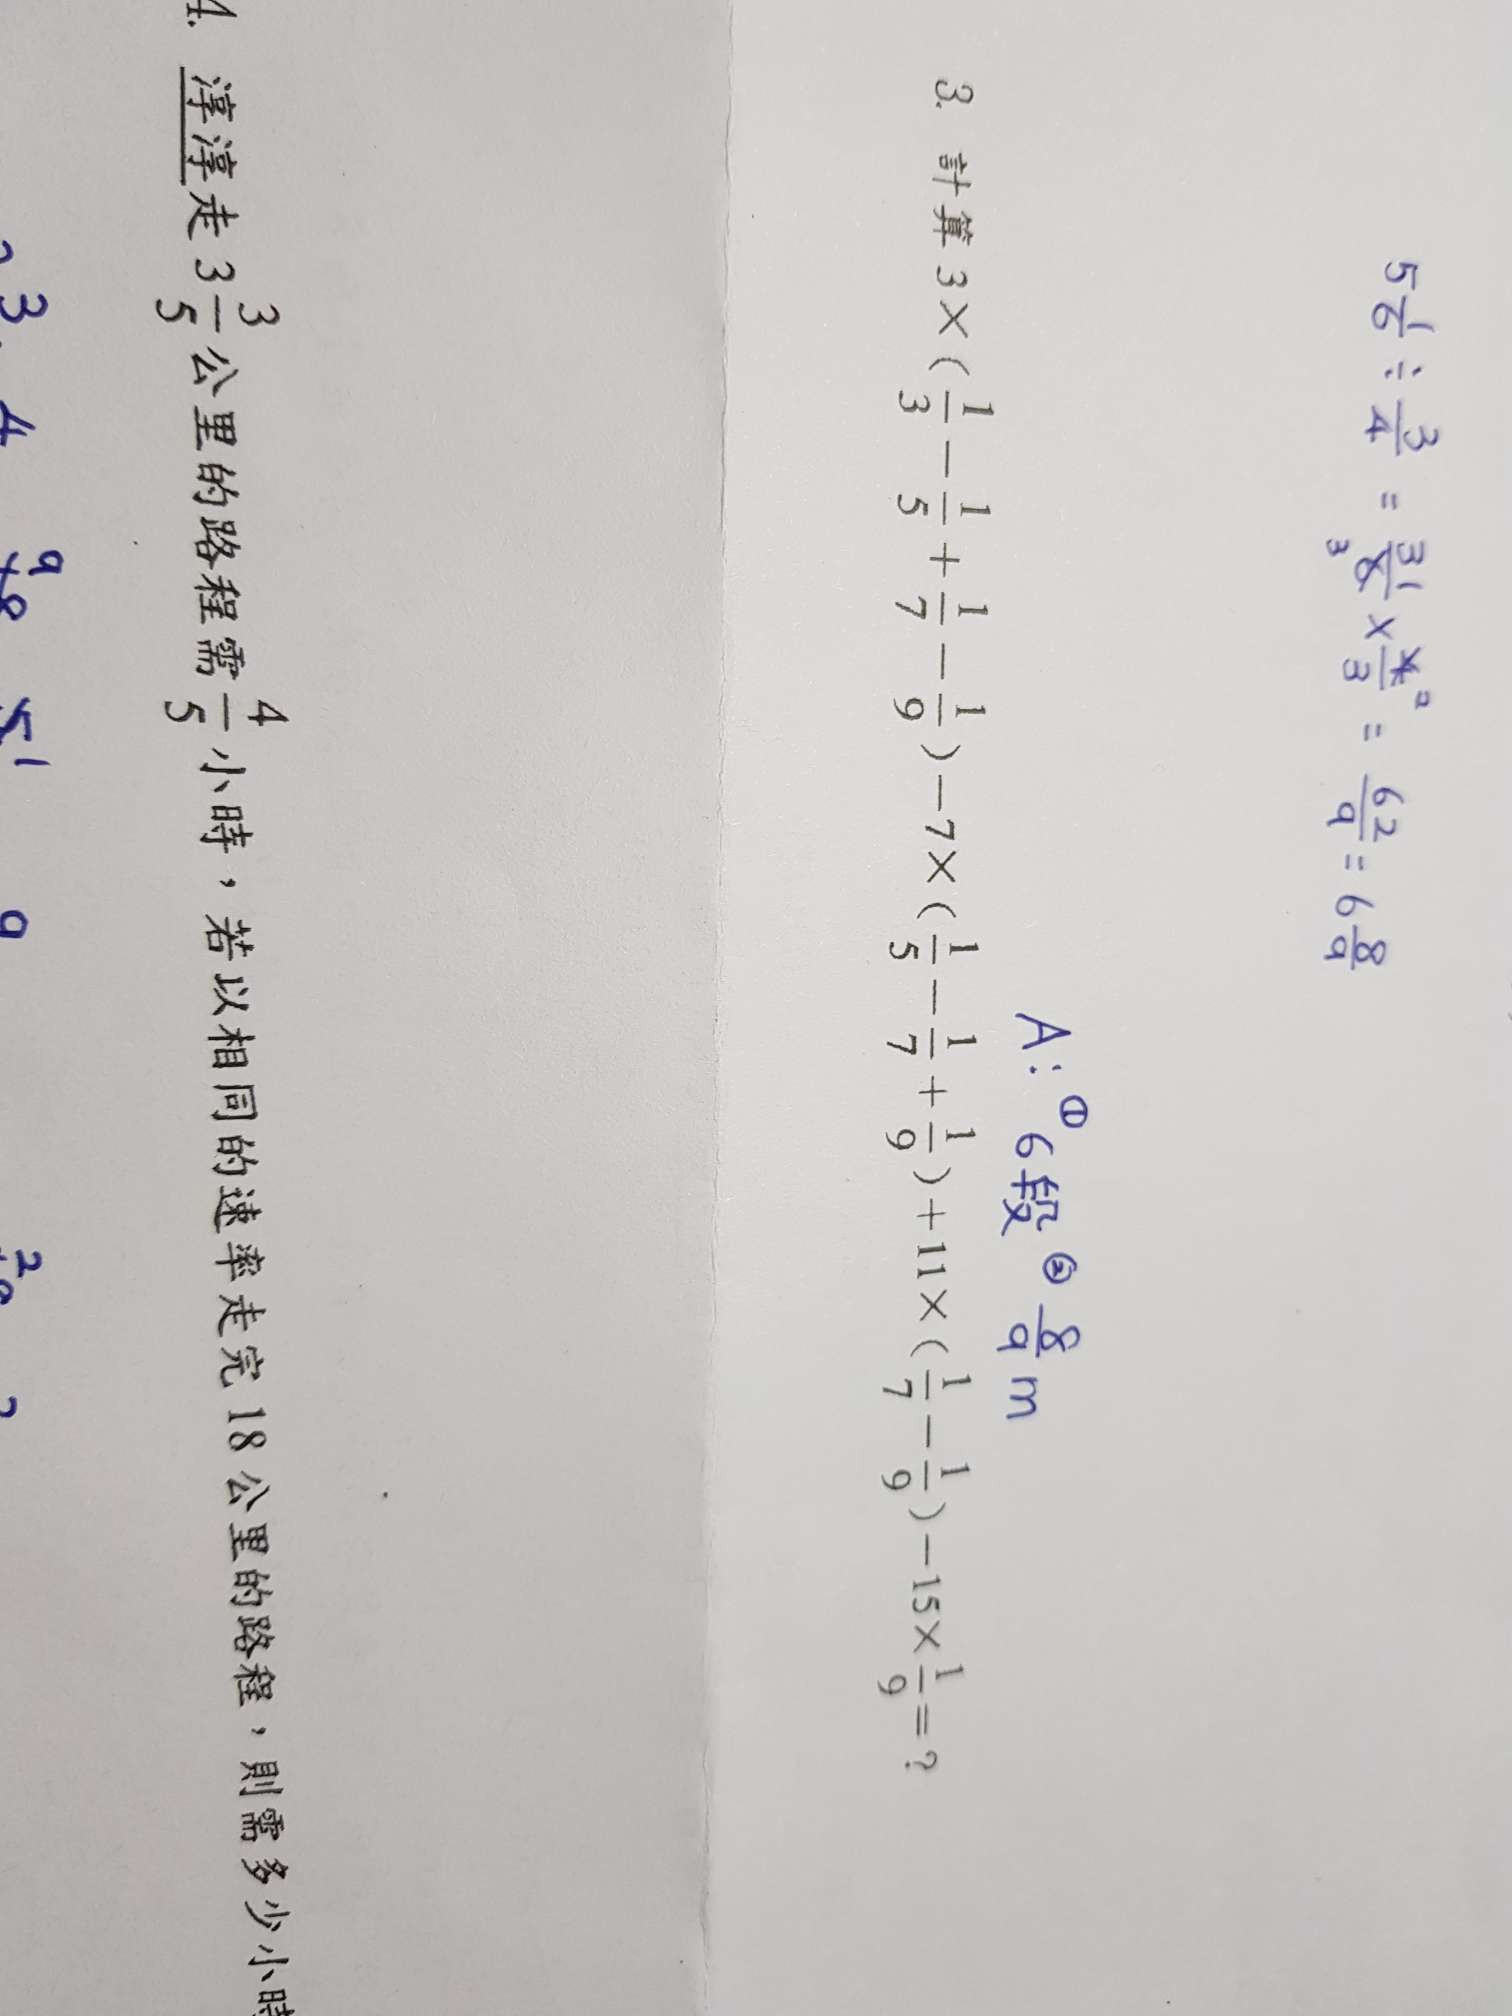 5 1/6 ÷ 3/4 = 31/6 × 4/3 = 62/9 = 6 8/9
3 2
A: ① 6段 ② 8/9 m
3. 計算 3×(1/3－1/5＋1/7－1/9)－7×(1/5－1/7＋1/9)＋11×(1/7－1/9)－15×1/9＝?
4. 淳淳走 3 3/5 公里的路程需 4/5 小時，若以相同的速率走完 18 公里的路程，則需多少小時